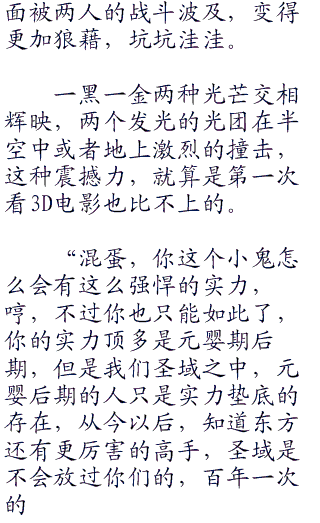 面被两人的战斗波及，变得
更加狼藉，坑坑洼洼。
一黑一金两种光芒交相
辉映，两个发光的光团在半
空中或者地上激烈的撞击，
这种震撼力，就算是第一次
看3D电影也比不上的。
“混蛋，你这个小鬼怎
么会有这么强悍的实力，
哼，不过你也只能如此了，
你的实力顶多是元婴期后
期，但是我们圣域之中，元
婴后期的人只是实力垫底的
存在，从今以后，知道东方
还有更厉害的高手，圣域是
不会放过你们的，百年一次
的